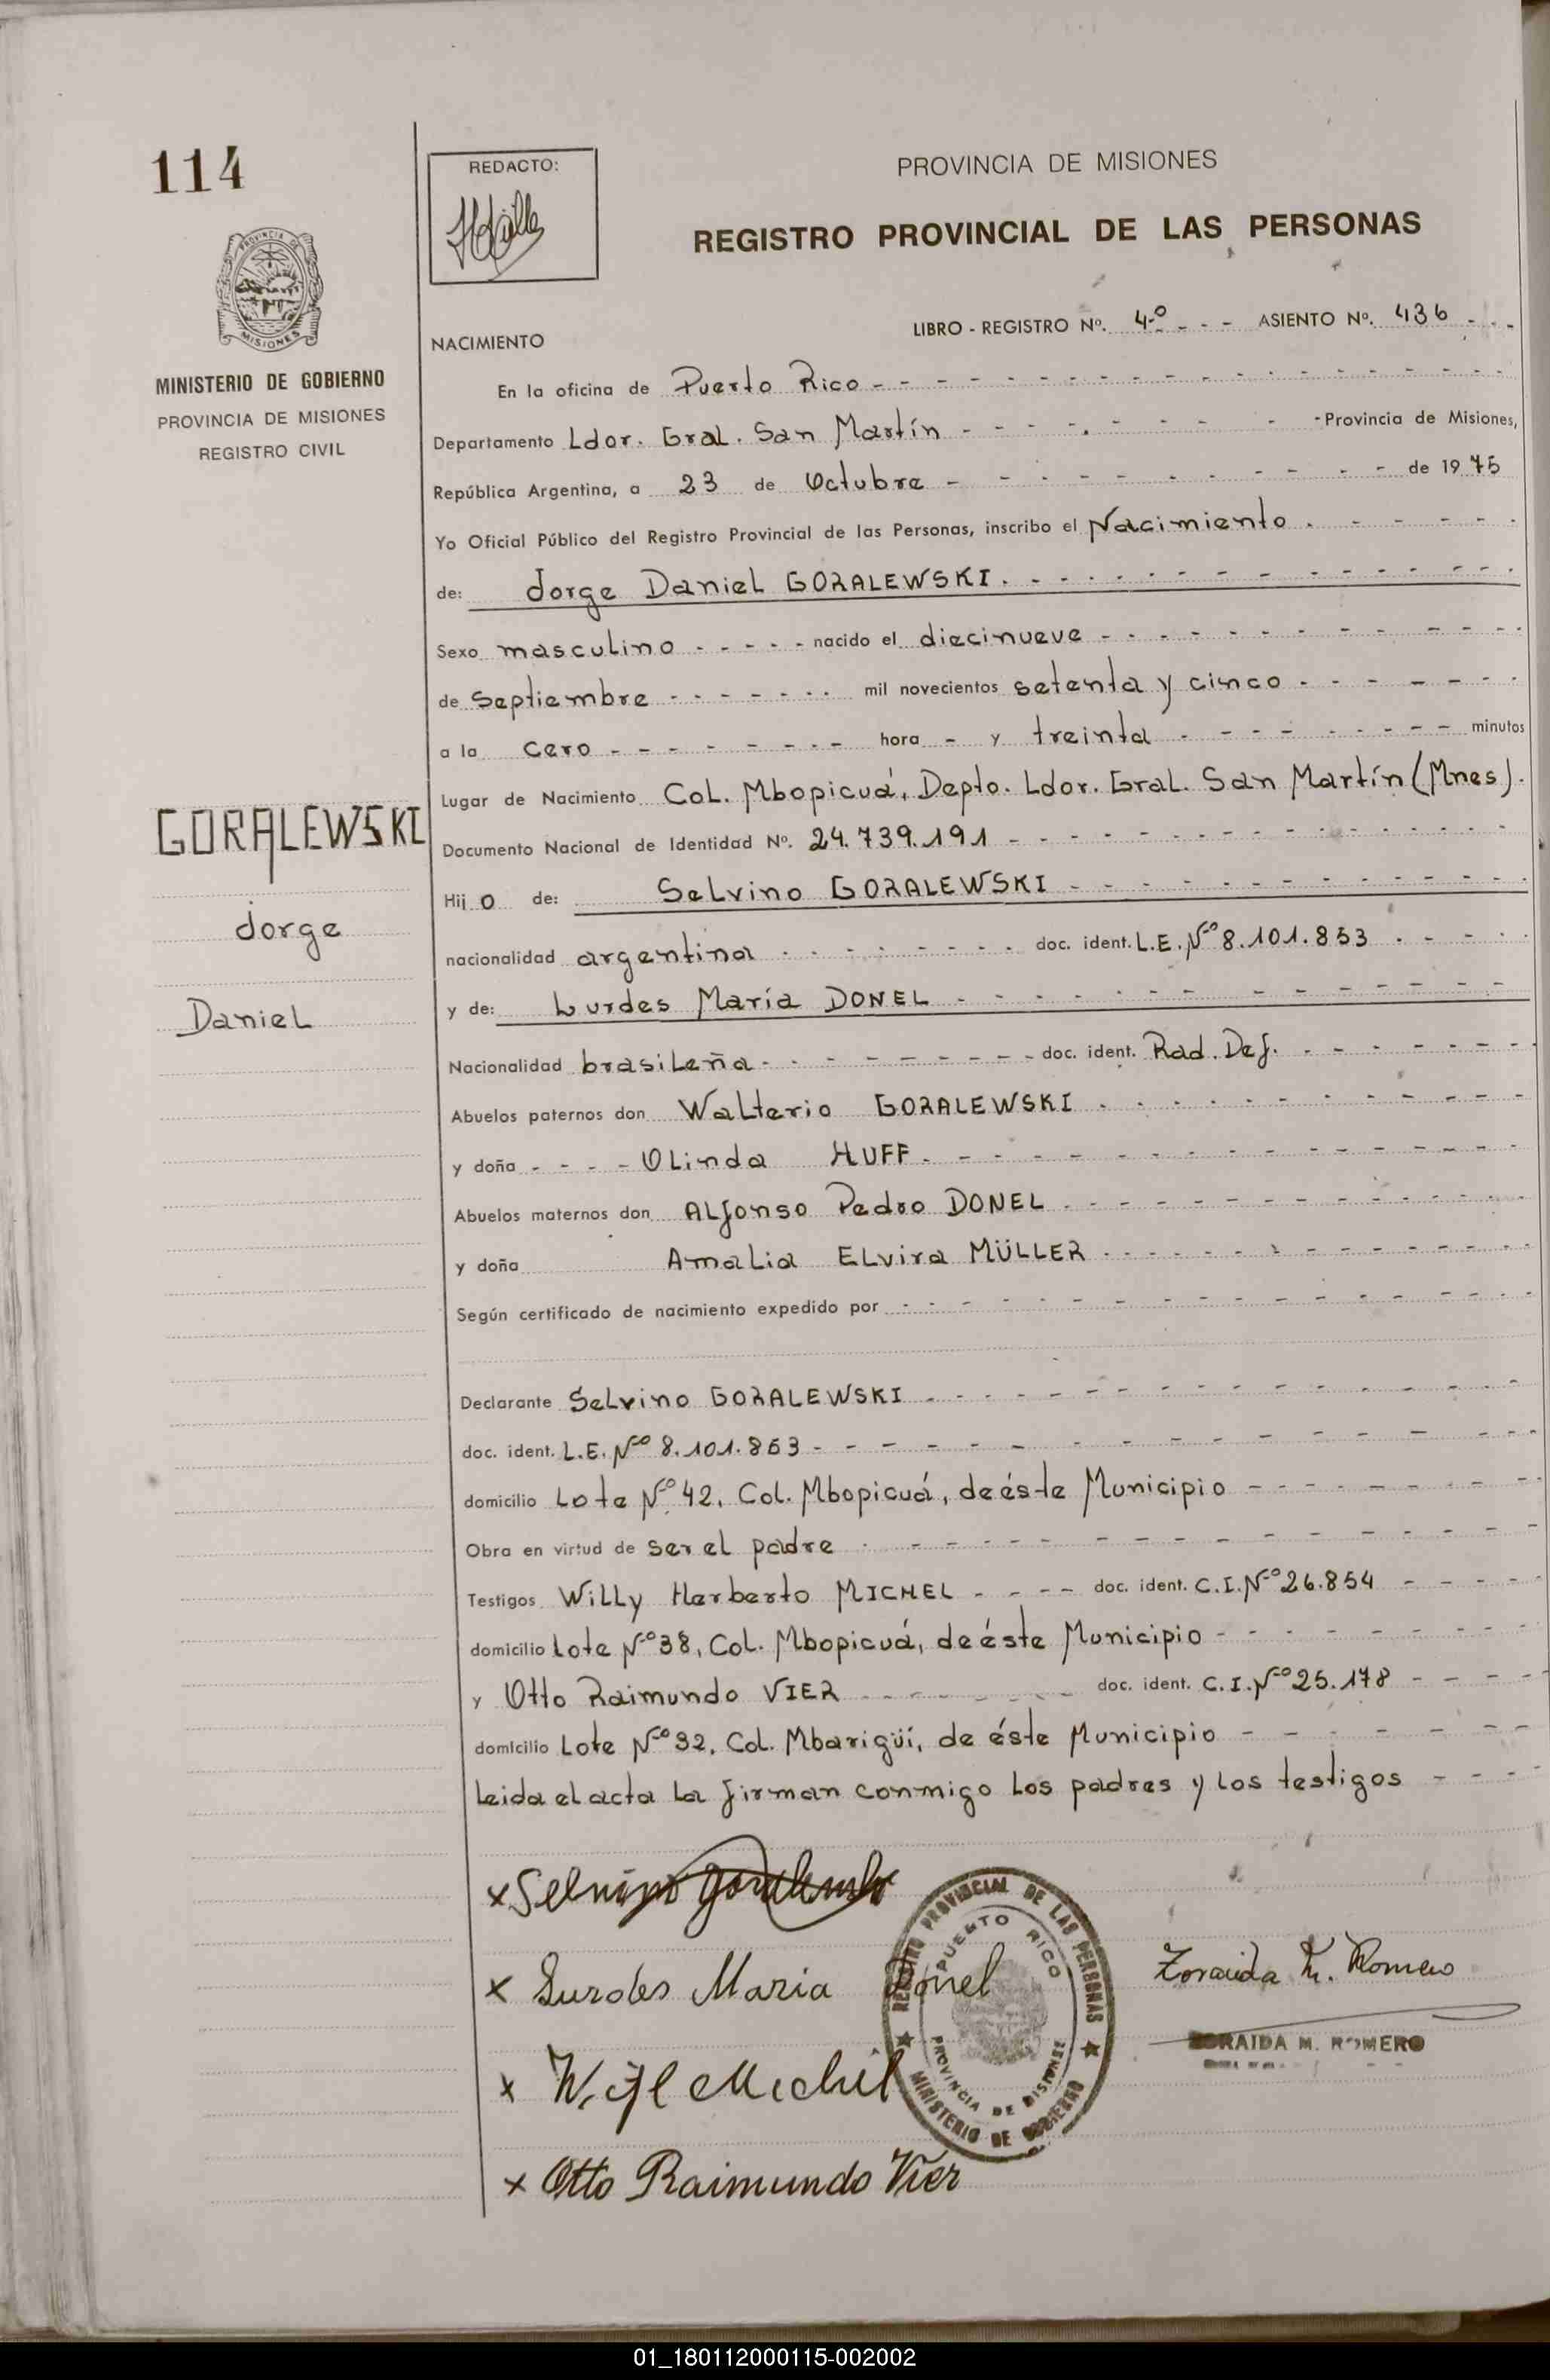 114
REDACTO:
PROVINCIA DE MISIONES
REGISTRO PROVINCIAL DE LAS PERSONAS
PROVINCIA DE
MISIONES
MINISTERIO DE GOBIERNO
PROVINCIA DE MISIONES
REGISTRO CIVIL
LIBRO - REGISTRO Nº. 4º - - - ASIENTO Nº. 436 - - -
NACIMIENTO
En la oficina de Puerto Rico - - -
Departamento Ldor. Gral. San Martín - - - Provincia de Misiones,
República Argentina, a 23 de Octubre - - - de 1975
Yo Oficial Público del Registro Provincial de las Personas, inscribo el Nacimiento - - -
de: Jorge Daniel GORALEWSKI. - - -
Sexo masculino - - - nacido el diecinueve - - -
de Septiembre - - - mil novecientos setenta y cinco - - -
a la cero - - - hora - y treinta - - - minutos
Lugar de Nacimiento Col. Mbopicuá, Depto. Ldor. Gral. San Martín (Mnes).
Documento Nacional de Identidad Nº. 24.739.191 - - -
GORALEWSKI
Jorge
Daniel
Hijo de: Selvino GORALEWSKI - - -
nacionalidad argentina - - - doc. ident. L.E. Nº 8.101.853 - - -
y de: Lurdes María DONEL - - -
Nacionalidad brasileña - - - doc. ident. Rad. Def. - - -
Abuelos paternos don Walterio GORALEWSKI - - -
y doña - - - Olinda HUFF - - -
Abuelos maternos don Alfonso Pedro DONEL - - -
y doña Amalia Elvira MÜLLER - - -
Según certificado de nacimiento expedido por - - -
Declarante Selvino GORALEWSKI - - -
doc. ident. L.E. Nº 8.101.853 - - -
domicilio Lote Nº 42, Col. Mbopicuá, de éste Municipio - - -
Obra en virtud de ser el padre - - -
Testigos Willy Herberto MICHEL - - - doc. ident. C.I. Nº 26.854 - - -
domicilio Lote Nº 38, Col. Mbopicuá, de éste Municipio - - -
y Otto Raimundo VIER - - - doc. ident. C.I. Nº 25.178 - - -
domicilio Lote Nº 32, Col. Mbarigüí, de éste Municipio - - -
Leida el acta la firman conmigo los padres y los testigos - - -
x Selvino
x Lurdes Maria Donel
x Michel
x Otto Raimundo Vier
REGISTRO PROVINCIAL DE LAS PERSONAS
PUERTO RICO
PROVINCIA DE MISIONES
MINISTERIO DE GOBIERNO
Zoraida M. Romero
ZORAIDA M. ROMERO
01_180112000115-002002